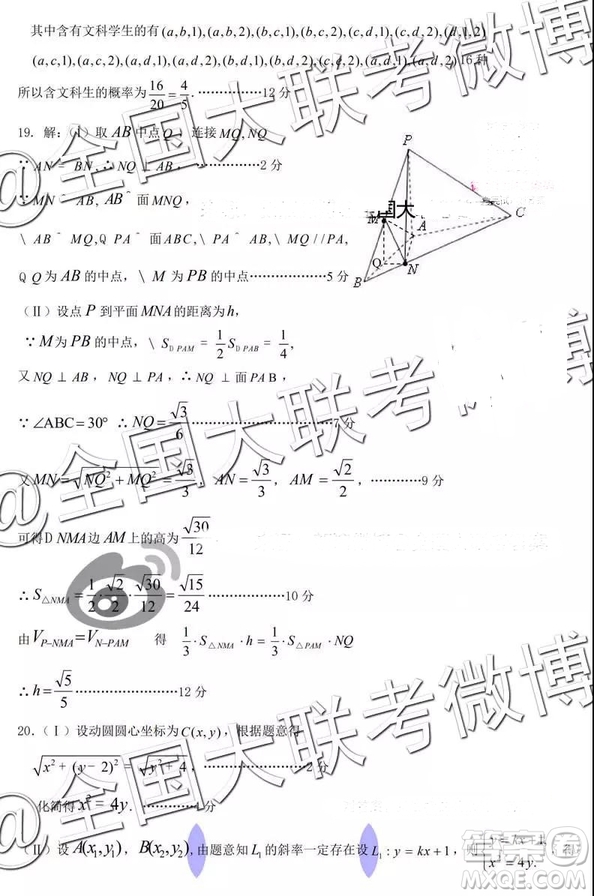 其中含有文科学生的有(a,b,1),(a,b,2),(b,c,1),(b,c,2),(c,d,1),(c,d,2),(d,1,2)
(a,c,1),(a,c,2),(a,d,1),(a,d,2),(b,d,1),(b,d,2),(a,d,1),(a,d,2)16种
所以含文科生的概率为 16/20 = 4/5. ……………12分
19. 解：(Ⅰ)取 AB 中点 Q，连接 MQ, NQ
∵ AN = BN, ∴ NQ ⊥ AB, ……………2分
∵ MN ^ AB, AB ^ 面 MNQ,
\ AB ^ MQ, Q PA ^ 面 ABC, \ PA ^ AB, \ MQ // PA,
Q Q 为 AB 的中点, \ M 为 PB 的中点………………5分
P
M
A
C
Q
N
B
(Ⅱ) 设点 P 到平面 MNA 的距离为 h,
∵ M 为 PB 的中点, \ S D PAM = 1/2 S D PAB = 1/4,
又 NQ ⊥ AB, NQ ⊥ PA, ∴ NQ ⊥ 面 PAB,
∵ ∠ABC = 30° ∴ NQ = √3/6 ………………7分
又 MN = √(NQ² + MQ²) = √3/3, AN = √3/3, AM = √2/2, …………9分
可得 D NMA 边 AM 上的高为 √30/12
∴ S△NMA = 1/2 · √2/2 · √30/12 = √15/24 ………………10分
由 V P-NMA = V N-PAM 得 1/3 · S△NMA · h = 1/3 · S△PAM · NQ
∴ h = √5/5 ………………12分
20. (Ⅰ) 设动圆圆心坐标为 C(x, y)，根据题意得
√(x² + (y-2)²) = √(y² + 4), ………………2分
化简得 x² = 4y. ………4分
(Ⅱ) 设 A(x₁, y₁), B(x₂, y₂), 由题意知 L₁ 的斜率一定存在设 L₁ : y = kx + 1, 则 { y = kx + 1, x² = 4y. 得
@全国大联考微博
@全国大联考微博
@全国大联考微博
答案圈
MXQE.COM